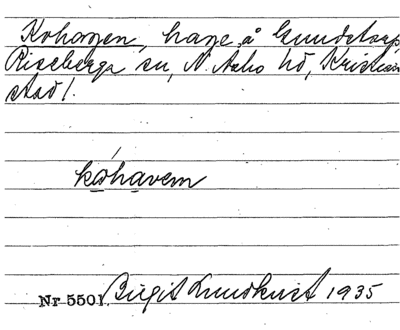 Kohagen, hage å Gundstorp,
Riseberga sn, N. Åsbo hd, Kristian
stad l.
kóhavem
Nr 5501. Birgit Lundkvist 1935